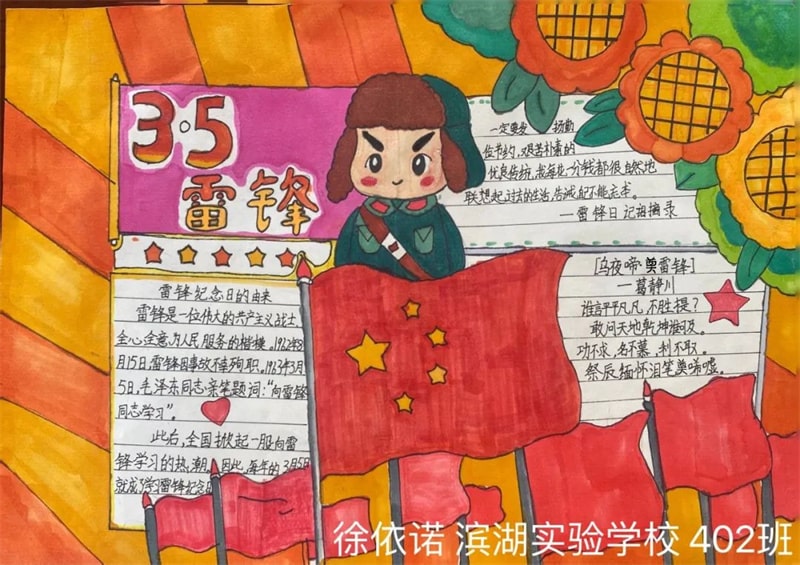 3·5
雷锋
一定要发 扬勤
俭节约、艰苦朴素的
优良传统,我每花一分钱都很自然地
联想起过去的生活,告诫自己不能忘本。
—雷锋日记摘录
雷锋纪念日的由来
雷锋是一位伟大的共产主义战士,
全心全意为人民服务的楷模。1962年8
月15日,雷锋因事故不幸殉职。1963年3月
5日,毛泽东同志亲笔题词:“向雷锋
同志学习”。
此后,全国掀起一股向雷
锋学习的热潮,因此,每年的3月5日
就成了学习雷锋纪念日
[乌夜啼·奠雷锋]
—葛静川
谁言平平凡凡,不胜提?
敢问天地乾坤谁问及。
功不求,名不慕,利不取。
祭辰缅怀泪笑奠唏嘘。
徐依诺 滨湖实验学校 402班